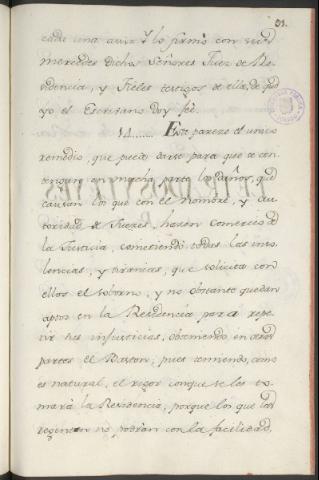 81.
cada una avia y lo firmò con sus
mercedes dichos Señores Juez de Re
sidencia, y Fieles testigos de ella, de que
yo el Escrivano doy feè.
14 Este parece el unico
remedio, que puede darse para que se con
tengan en mucha parte los daños, que
causan los que con el nombre, y Au
toridad de Juezes, hazen comercio de
la Justicia, cometiendo todas las inso
lencias, y tiranias, que solicita con
ellos el soborno, y no obstante quedan
aptos en la Residencia para repe
tir sus injusticias, obteniendo en otras
partes el Baston; pues temiendo, como
es natural, el rigor con que se les to
mará la Residencia, porque los que las
regentan no podràn con la facilidad,